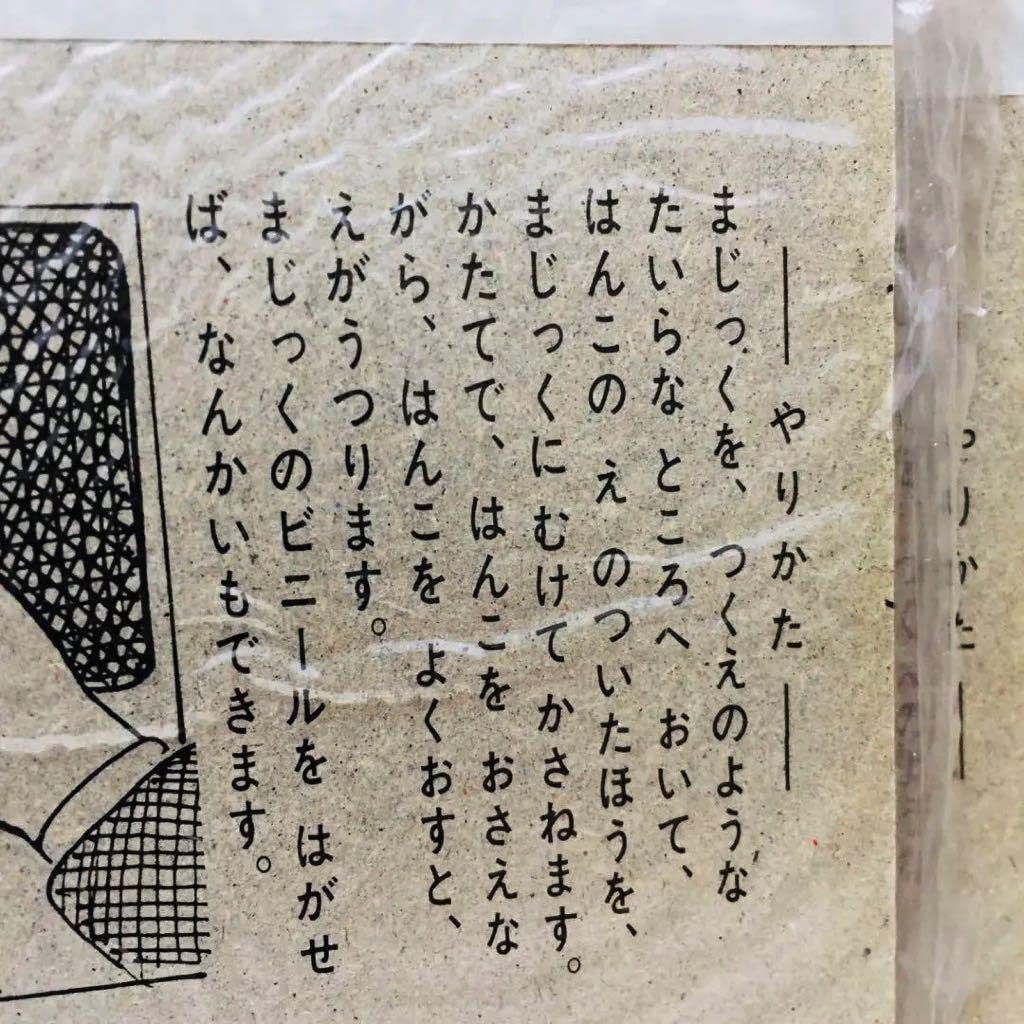 ―― やりかた ――
まじっくを、つくえのような
たいらな ところへ おいて、
はんこの え のついたほうを、
まじっくにむけて かさねます。
かたてで、はんこを おさえな
がら、はんこを よくおすと、
えがうつります。
まじっくのビニールを はがせ
ば、なんかいもできます。
りかた ――